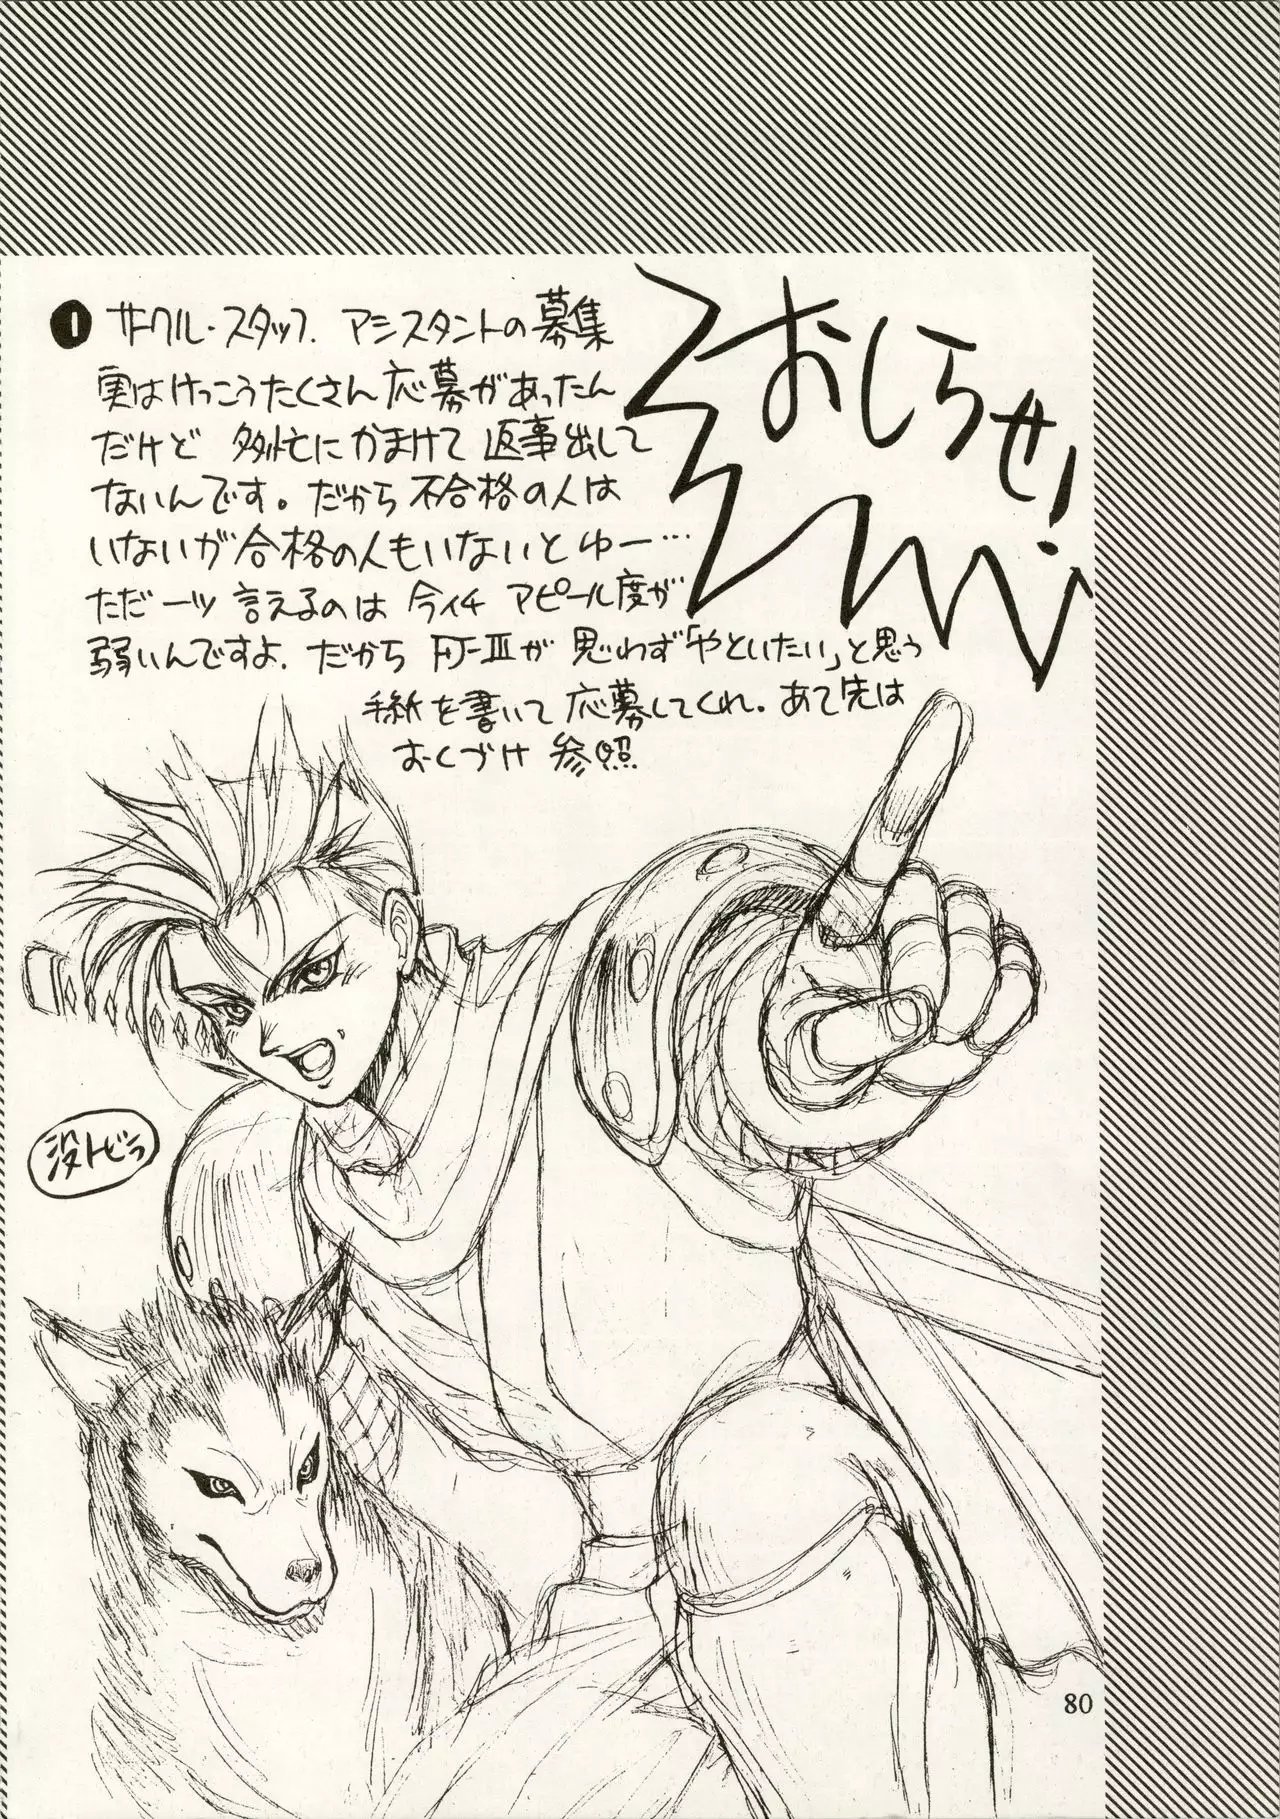 おしらせ!
1 サークル・スタッフ. アシスタントの募集
実はけっこうたくさん応募があったん
だけど 多忙にかまけて 返事出して
ないんです。だから 不合格の人は
いないが 合格の人もいないとゆー…
ただ一ツ 言えるのは 今イチ アピール度が
弱いんですよ. だから FJ-Ⅲが 思わず「やといたい」と思う
手紙を書いて 応募してくれ。あて先は
おくづけ 参照
没トビラ
80